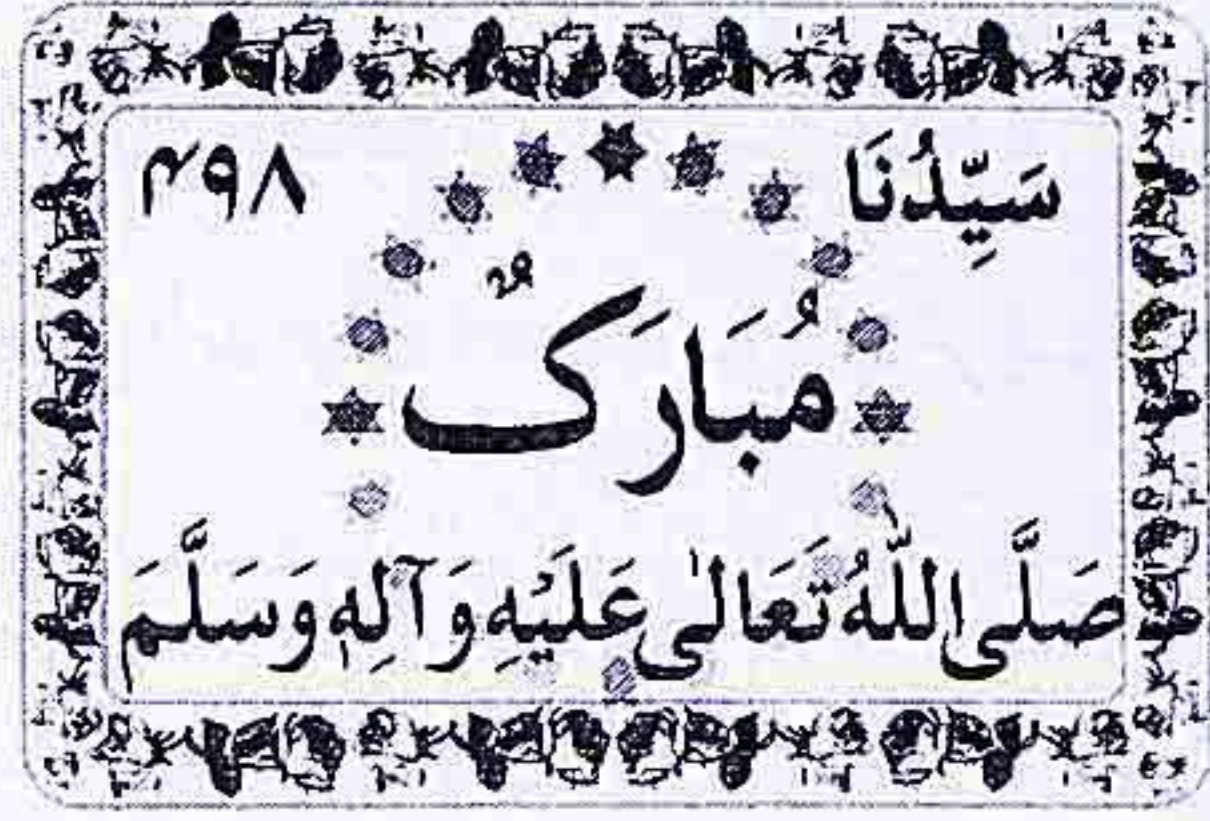 سَيِّدُنَا ۴۹۸
مُبَارَکٌ
صَلَّی اللّٰهُ تَعَالٰی عَلَيْهِ وَ آلِهٖ وَسَلَّمَ